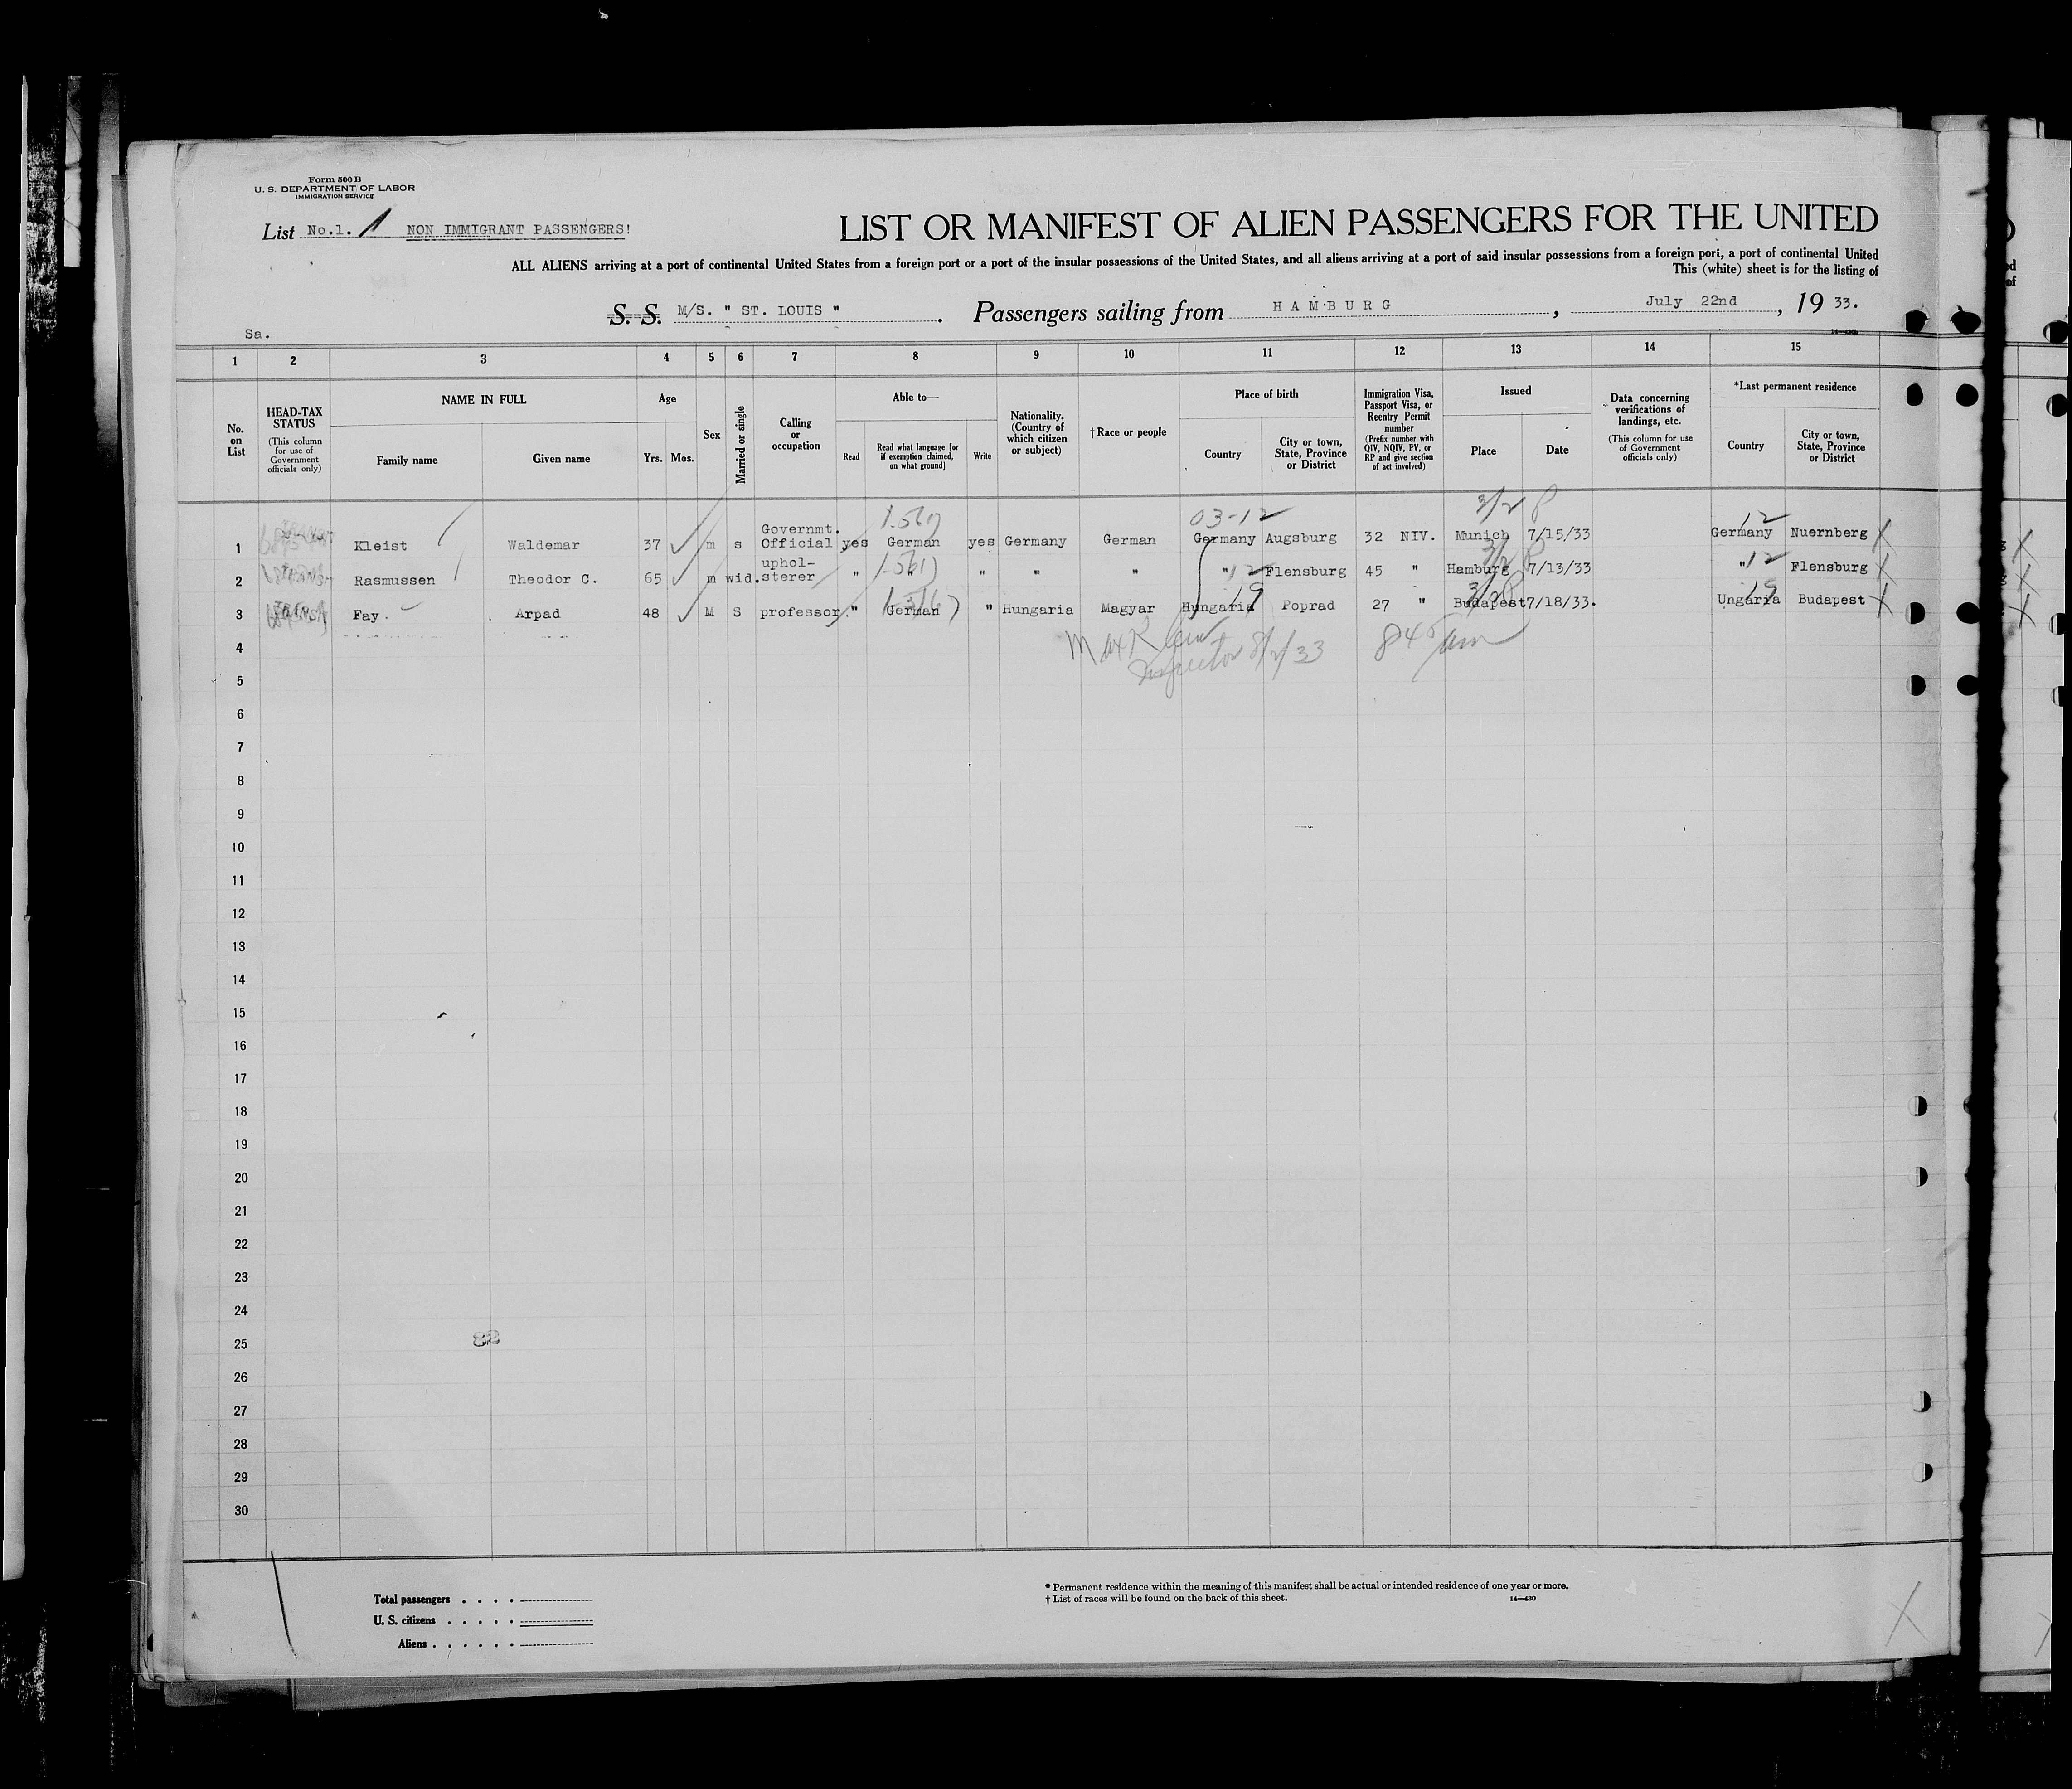 Form 500 B
U. S. DEPARTMENT OF LABOR
IMMIGRATION SERVICE
List No.1. 1 NON IMMIGRANT PASSENGERS!
LIST OR MANIFEST OF ALIEN PASSENGERS FOR THE UNITED
ALL ALIENS arriving at a port of continental United States from a foreign port or a port of the insular possessions of the United States, and all aliens arriving at a port of said insular possessions from a foreign port, a port of continental United
This (white) sheet is for the listing of
S. S. M/S. " ST. LOUIS " . Passengers sailing from HAMBURG , July 22nd , 19 33.
Sa.
1 2 3 4 5 6 7 8 9 10 11 12 13 14 15
No. on List
HEAD-TAX STATUS
(This column for use of Government officials only)
NAME IN FULL
Family name
Given name
Age
Yrs. Mos.
Sex
Married or single
Calling or occupation
Able to—
Read
Read what language [or if exemption claimed, on what ground]
Write
Nationality. (Country of which citizen or subject)
†Race or people
Place of birth
Country
City or town, State, Province or District
Immigration Visa, Passport Visa, or Reentry Permit number
(Prefix number with QIV, NQIV, PV, or RP and give section of act involved)
Issued
Place
Date
Data concerning verifications of landings, etc.
(This column for use of Government officials only)
*Last permanent residence
Country
City or town, State, Province or District
03-12 12
1 Kleist Waldemar 37 m s Governmt. Official yes German yes Germany German Germany Augsburg 32 NIV. Munich 7/15/33 Germany Nuernberg
2 Rasmussen Theodor C. 65 m wid. uphol-sterer " " " " " " 12 Flensburg 45 " Hamburg 7/13/33 " 12 Flensburg
3 Fay. Arpad 48 M S professor. " German " Hungaria Magyar Hungaria 19 Poprad 27 " Budapest 7/18/33. Ungaria 19 Budapest
4 Max
Inspector 8/2/33 845 am
5
6
7
8
9
10
11
12
13
14
15
16
17
18
19
20
21
22
23
24
25 82
26
27
28
29
30
Total passengers . . . .
U. S. citizens . . . . .
Aliens . . . . . .
* Permanent residence within the meaning of this manifest shall be actual or intended residence of one year or more.
† List of races will be found on the back of this sheet. 14—430